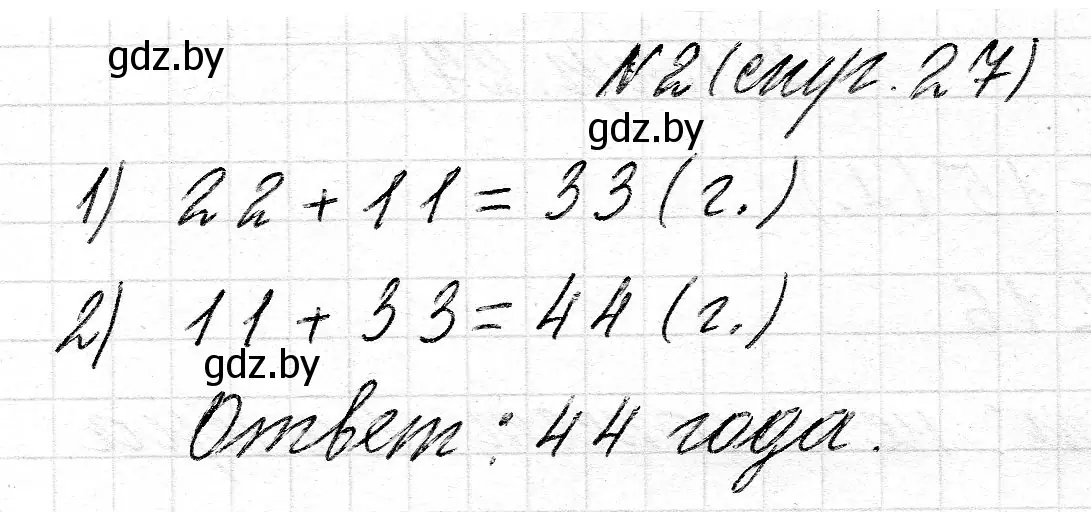 gdz.by
№2 (стр. 27)
gdz.by
1) 22 + 11 = 33 (г.)
2) 11 + 33 = 44 (г.)
gdz.by
Ответ: 44 года.